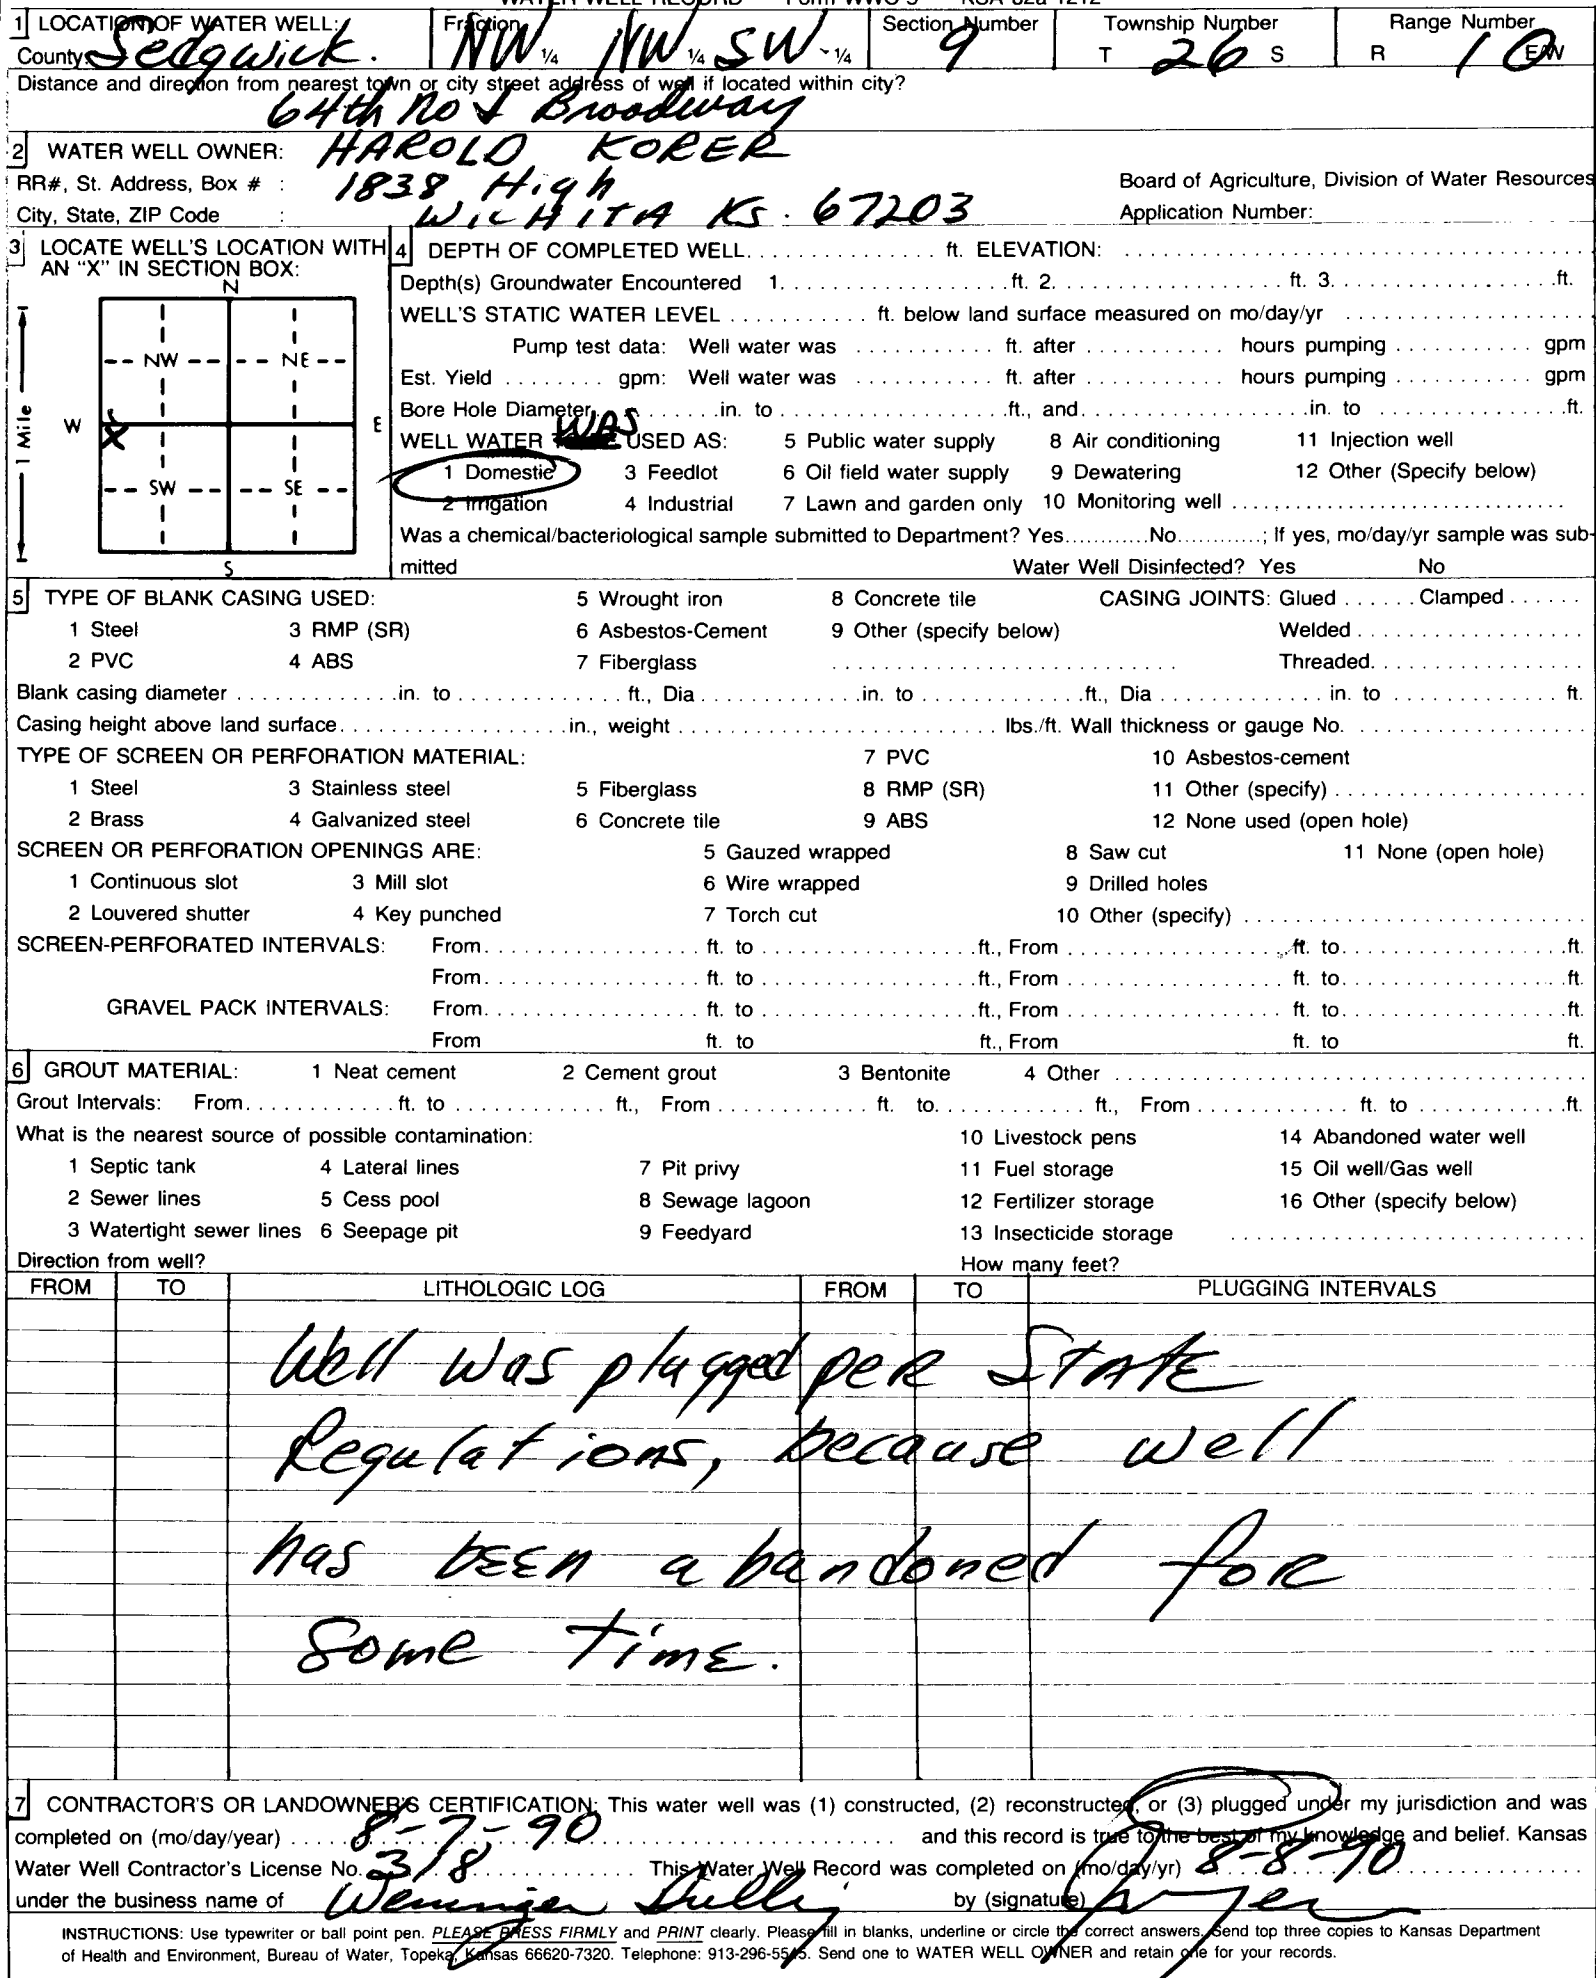 WATER WELL RECORD Form WWC-5 KSA 82a-1212
1 LOCATION OF WATER WELL: Fraction Section Number Township Number Range Number
County: Sedgwick. NW ¼ NW ¼ SW ¼ 9 T 26 S R 1 E/W
Distance and direction from nearest town or city street address of well if located within city?
64th No & Broadway
2 WATER WELL OWNER: HAROLD KORER
RR#, St. Address, Box # : 1838 High Board of Agriculture, Division of Water Resources
City, State, ZIP Code : WICHITA KS. 67203 Application Number:
3 LOCATE WELL'S LOCATION WITH AN "X" IN SECTION BOX:
N
NW NE
W E
X
SW SE
S
1 Mile
4 DEPTH OF COMPLETED WELL. ft. ELEVATION:
Depth(s) Groundwater Encountered 1. ft. 2. ft. 3. ft.
WELL'S STATIC WATER LEVEL ft. below land surface measured on mo/day/yr
Pump test data: Well water was ft. after hours pumping gpm
Est. Yield gpm: Well water was ft. after hours pumping gpm
Bore Hole Diameter in. to ft., and in. to ft.
WELL WATER WAS USED AS: 5 Public water supply 8 Air conditioning 11 Injection well
1 Domestic 3 Feedlot 6 Oil field water supply 9 Dewatering 12 Other (Specify below)
2 Irrigation 4 Industrial 7 Lawn and garden only 10 Monitoring well
Was a chemical/bacteriological sample submitted to Department? Yes No ; If yes, mo/day/yr sample was sub-
mitted Water Well Disinfected? Yes No
5 TYPE OF BLANK CASING USED: 5 Wrought iron 8 Concrete tile CASING JOINTS: Glued Clamped
1 Steel 3 RMP (SR) 6 Asbestos-Cement 9 Other (specify below) Welded
2 PVC 4 ABS 7 Fiberglass Threaded.
Blank casing diameter in. to ft., Dia in. to ft., Dia in. to ft.
Casing height above land surface in., weight lbs./ft. Wall thickness or gauge No.
TYPE OF SCREEN OR PERFORATION MATERIAL: 7 PVC 10 Asbestos-cement
1 Steel 3 Stainless steel 5 Fiberglass 8 RMP (SR) 11 Other (specify)
2 Brass 4 Galvanized steel 6 Concrete tile 9 ABS 12 None used (open hole)
SCREEN OR PERFORATION OPENINGS ARE: 5 Gauzed wrapped 8 Saw cut 11 None (open hole)
1 Continuous slot 3 Mill slot 6 Wire wrapped 9 Drilled holes
2 Louvered shutter 4 Key punched 7 Torch cut 10 Other (specify)
SCREEN-PERFORATED INTERVALS: From ft. to ft., From ft. to ft.
From ft. to ft., From ft. to ft.
GRAVEL PACK INTERVALS: From ft. to ft., From ft. to ft.
From ft. to ft., From ft. to ft.
6 GROUT MATERIAL: 1 Neat cement 2 Cement grout 3 Bentonite 4 Other
Grout Intervals: From ft. to ft., From ft. to ft., From ft. to ft.
What is the nearest source of possible contamination: 10 Livestock pens 14 Abandoned water well
1 Septic tank 4 Lateral lines 7 Pit privy 11 Fuel storage 15 Oil well/Gas well
2 Sewer lines 5 Cess pool 8 Sewage lagoon 12 Fertilizer storage 16 Other (specify below)
3 Watertight sewer lines 6 Seepage pit 9 Feedyard 13 Insecticide storage
Direction from well? How many feet?
FROM TO LITHOLOGIC LOG FROM TO PLUGGING INTERVALS
Well was plugged per STATE
Regulations, because well
has been abandoned for
Some Time.
7 CONTRACTOR'S OR LANDOWNER'S CERTIFICATION: This water well was (1) constructed, (2) reconstructed, or (3) plugged under my jurisdiction and was
completed on (mo/day/year) 8-7-90 and this record is true to the best of my knowledge and belief. Kansas
Water Well Contractor's License No. 318 This Water Well Record was completed on (mo/day/yr) 8-8-90
under the business name of by (signature)
INSTRUCTIONS: Use typewriter or ball point pen. PLEASE PRESS FIRMLY and PRINT clearly. Please fill in blanks, underline or circle the correct answers. Send top three copies to Kansas Department
of Health and Environment, Bureau of Water, Topeka, Kansas 66620-7320. Telephone: 913-296-5545. Send one to WATER WELL OWNER and retain one for your records.